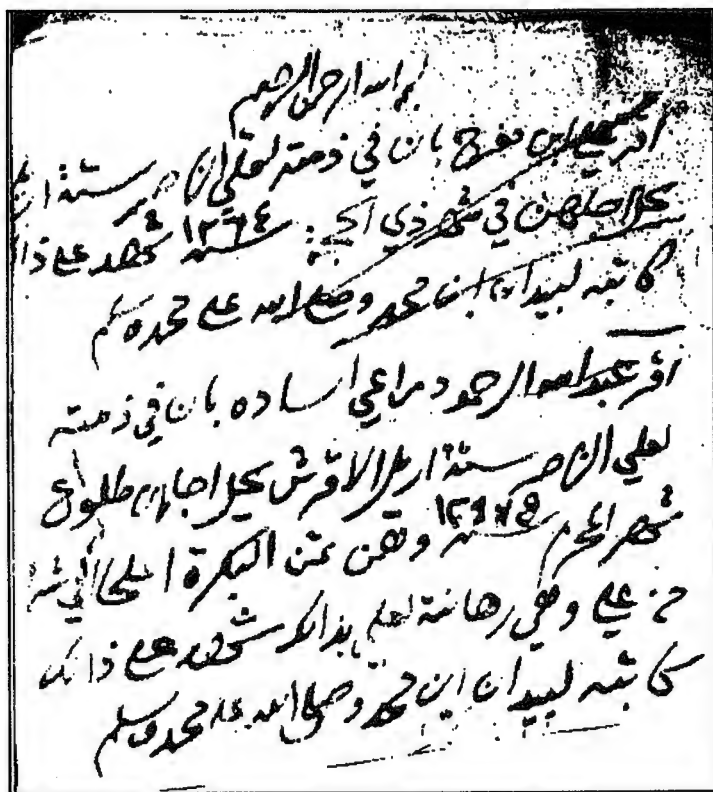 بسم الله الرحمن الرحيم
اقر ابن مفرح بان في ذمته لعلي الناصر ستة
يحل اجلهن في شهر ذي الحجة سنة ١٢٦٤ شهد على ذا
كاتبه لبيدان ابن محمد وصلى الله على محمد وسلم
اقر عبدالله الرحمود مراعي اساده بان في ذمته
لعلي الناصر ستة اريل الا قرش يحل اجلهن طلوع
شهر المحرم سنة وهن ثمن البكرة الملحا
من علي وهي رهانة لعلي بذالك شهد على ذالك
كاتبه لبيدان ابن محمد وصلى الله على محمد وسلم